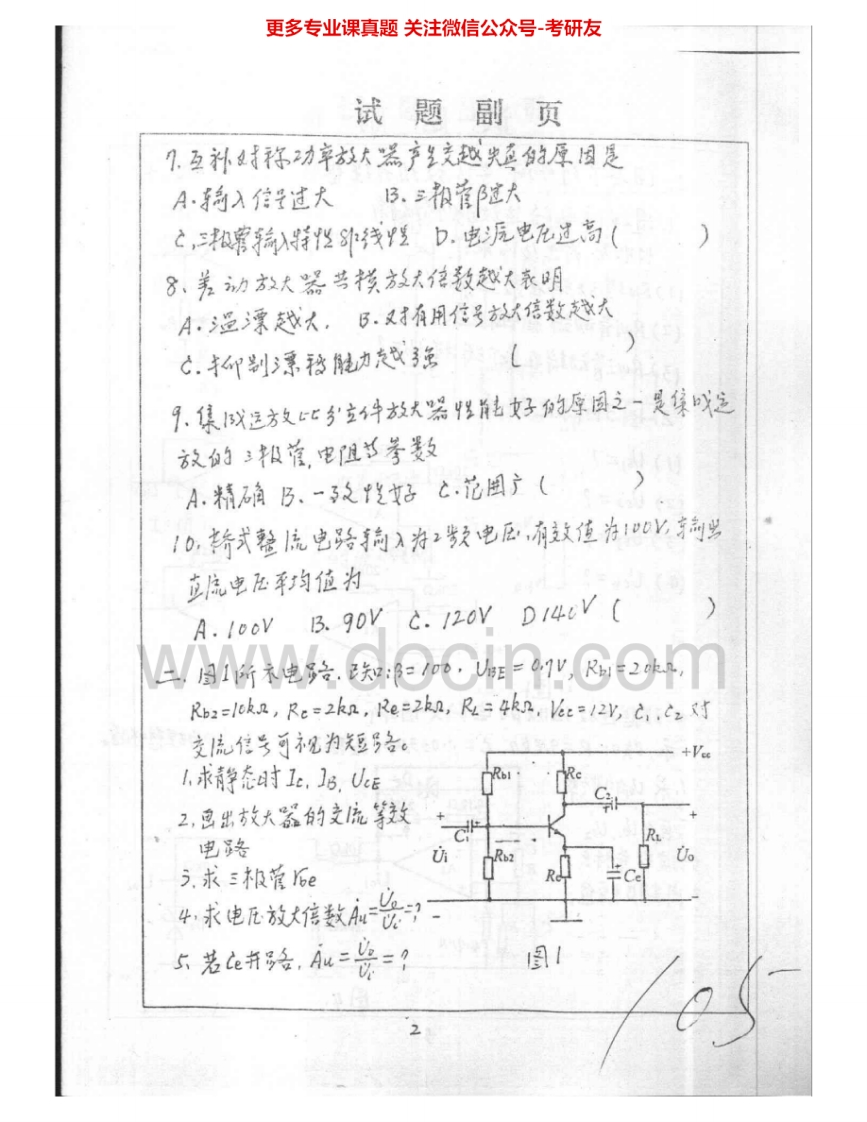 更多专业课真题 关注微信公众号-考研友
试 题 副 页
7. 互补对称功率放大器产生交越失真的原因是
A. 输入信号过大 B. 三极管β过大
C. 三极管输入特性非线性 D. 电源电压过高 ( )
8. 差动放大器共模放大倍数越大表明
A. 温漂越大. B. 对有用信号放大倍数越大
C. 抑制漂移能力越强 ( )
9. 集成运放比分立件放大器性能好的原因之一是集成运
放的三极管, 电阻等参数
A. 精确 B. 一致性好 C. 范围广 ( )
10. 桥式整流电路输入为工频电压, 有效值为100V, 输出
直流电压平均值为
A. 100V B. 90V C. 120V D 140V ( )
www.docin.com
二. 图1所示电路. 已知: β=100, UBE=0.7V, Rb1=20kΩ,
Rb2=10kΩ, Rc=2kΩ, Re=2kΩ, RL=4kΩ, Vcc=12V, C1, C2 对
交流信号可视为短路。
1. 求静态时 Ic, IB, UCE
2. 画出放大器的交流等效
电路
3. 求三极管rbe
4. 求电压放大倍数Au=U̇o/U̇i=?
5. 若Ce开路, Au=U̇o/U̇i=?
+Vcc
Rb1
Rc
C2
+
+
C1
+
+
U̇i
Rb2
Re
Ce
RL
U̇o
-
-
图1
2
105-